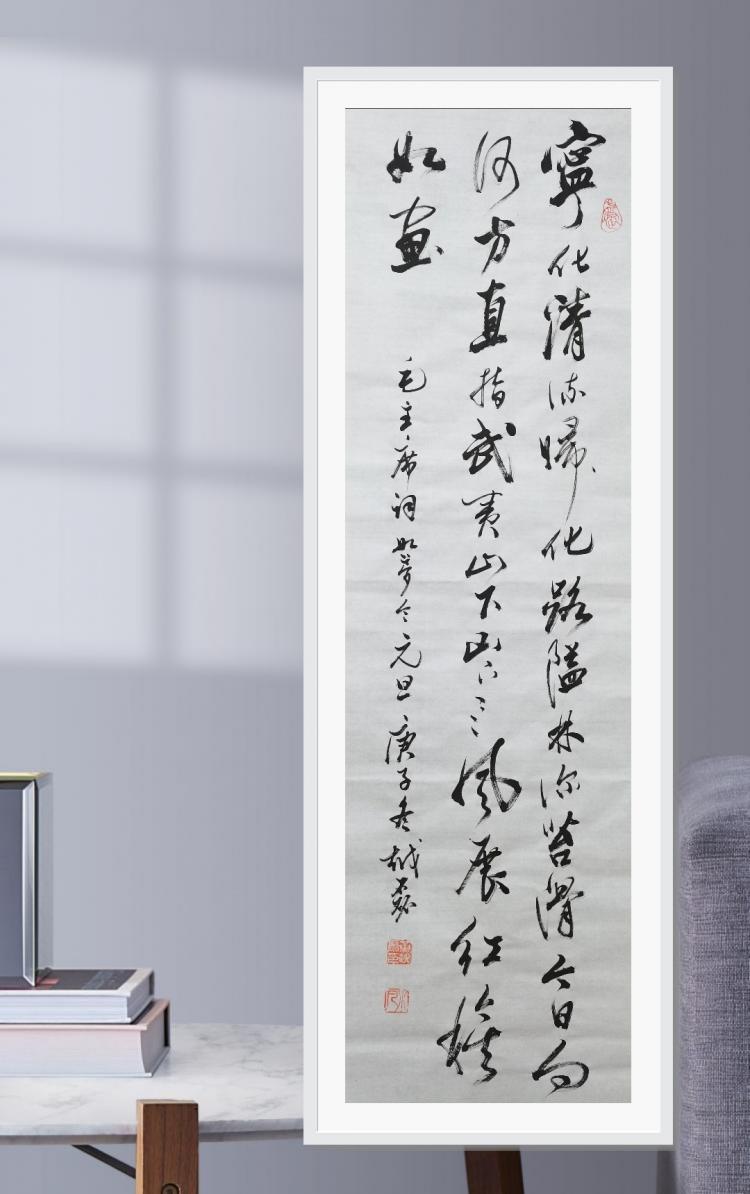 寧化清流歸化路隘林深苔滑今日向
何方直指武夷山下山下〻〻風展紅旗
如畫
毛主席词如夢令元旦庚子冬越